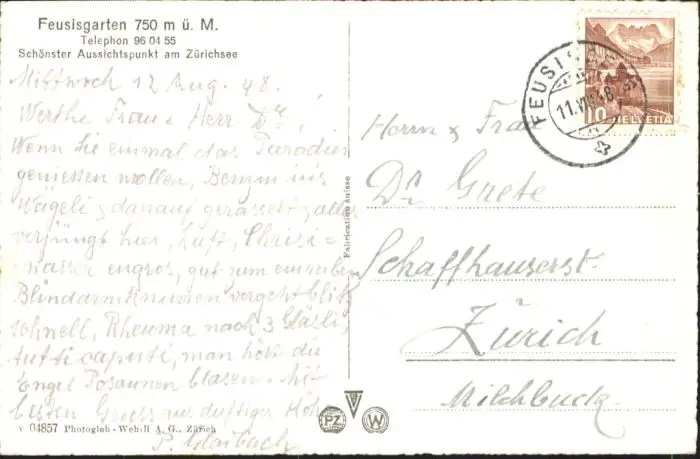 Feusisgarten 750 m ü. M.
Telephon 96 04 55
Schönster Aussichtspunkt am Zürichsee
Mittwoch 12 Aug. 48.
Werthe Frau & Herr Dr,
Wenn Sie einmal das Paradies
geniessen wollen, Benzin ins
Wägeli & darauf gerasselt, alles
verjüngt hier, Luft, Chrisi=
wasser engros, gut zum einreiben
Blindarmknurren vergeht blitz
schnell, Rheuma nach 3 Gläsli,
tutti caputi, man hört die
Engel Posaunen blasen. Mit
besten Gruss aus duftiger Höhe
P. Glaibach
v 04857 Photoglob-Wehrli A. G., Zürich
Fabrication suisse
PZ
W
FEUSIS
11.VIII.48
10 HELVETIA
Herrn & Frau
Dr Grete
Schaffhauserst.
Zürich
Milchbuck.